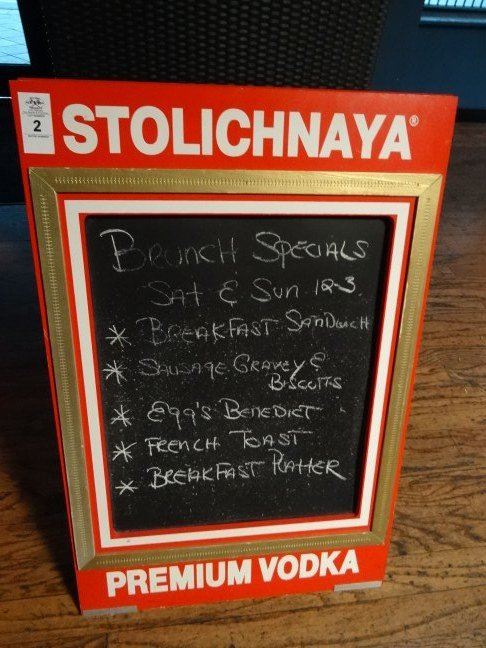 2
STOLICHNAYA®
BRUNCH SPECIALS
SAT & SUN 12-3
* BREAKFAST SANDWICH
* SAUSAGE GRAVEY &
BISCUITS
* EGG'S BENEDICT
* FRENCH TOAST
* BREAKFAST PLATTER
PREMIUM VODKA